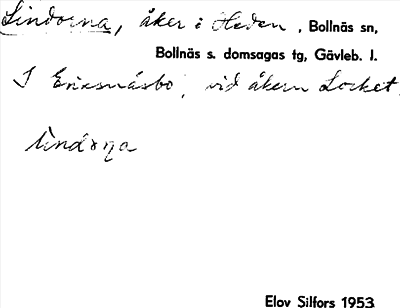 Lindorna, åker i Heden, Bollnäs sn,
Bollnäs s. domsagas tg, Gävleb. l.
I Ericsnäsbo, vid åkern Locket.
lìndɤṇa
Elov Silfors 1953